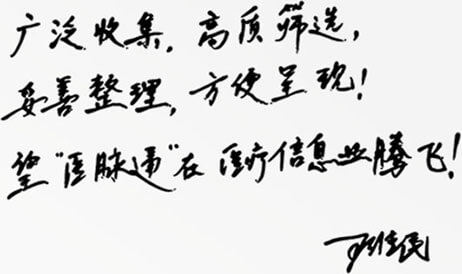 广泛收集，高质筛选，
妥善整理，方便呈现！
望“医脉通”在医疗信息业腾飞！